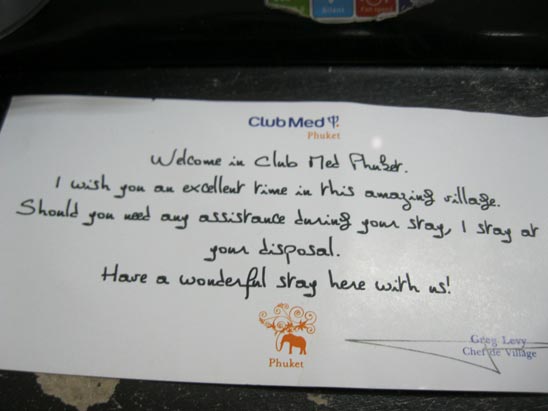 Silent
Club Med
Phuket
Welcome in Club Med Phuket.
I wish you an excellent time in this amazing village.
Should you need any assistance during your stay, I stay at
your disposal.
Have a wonderful stay here with us!
Phuket
Greg Levy
Chef de Village